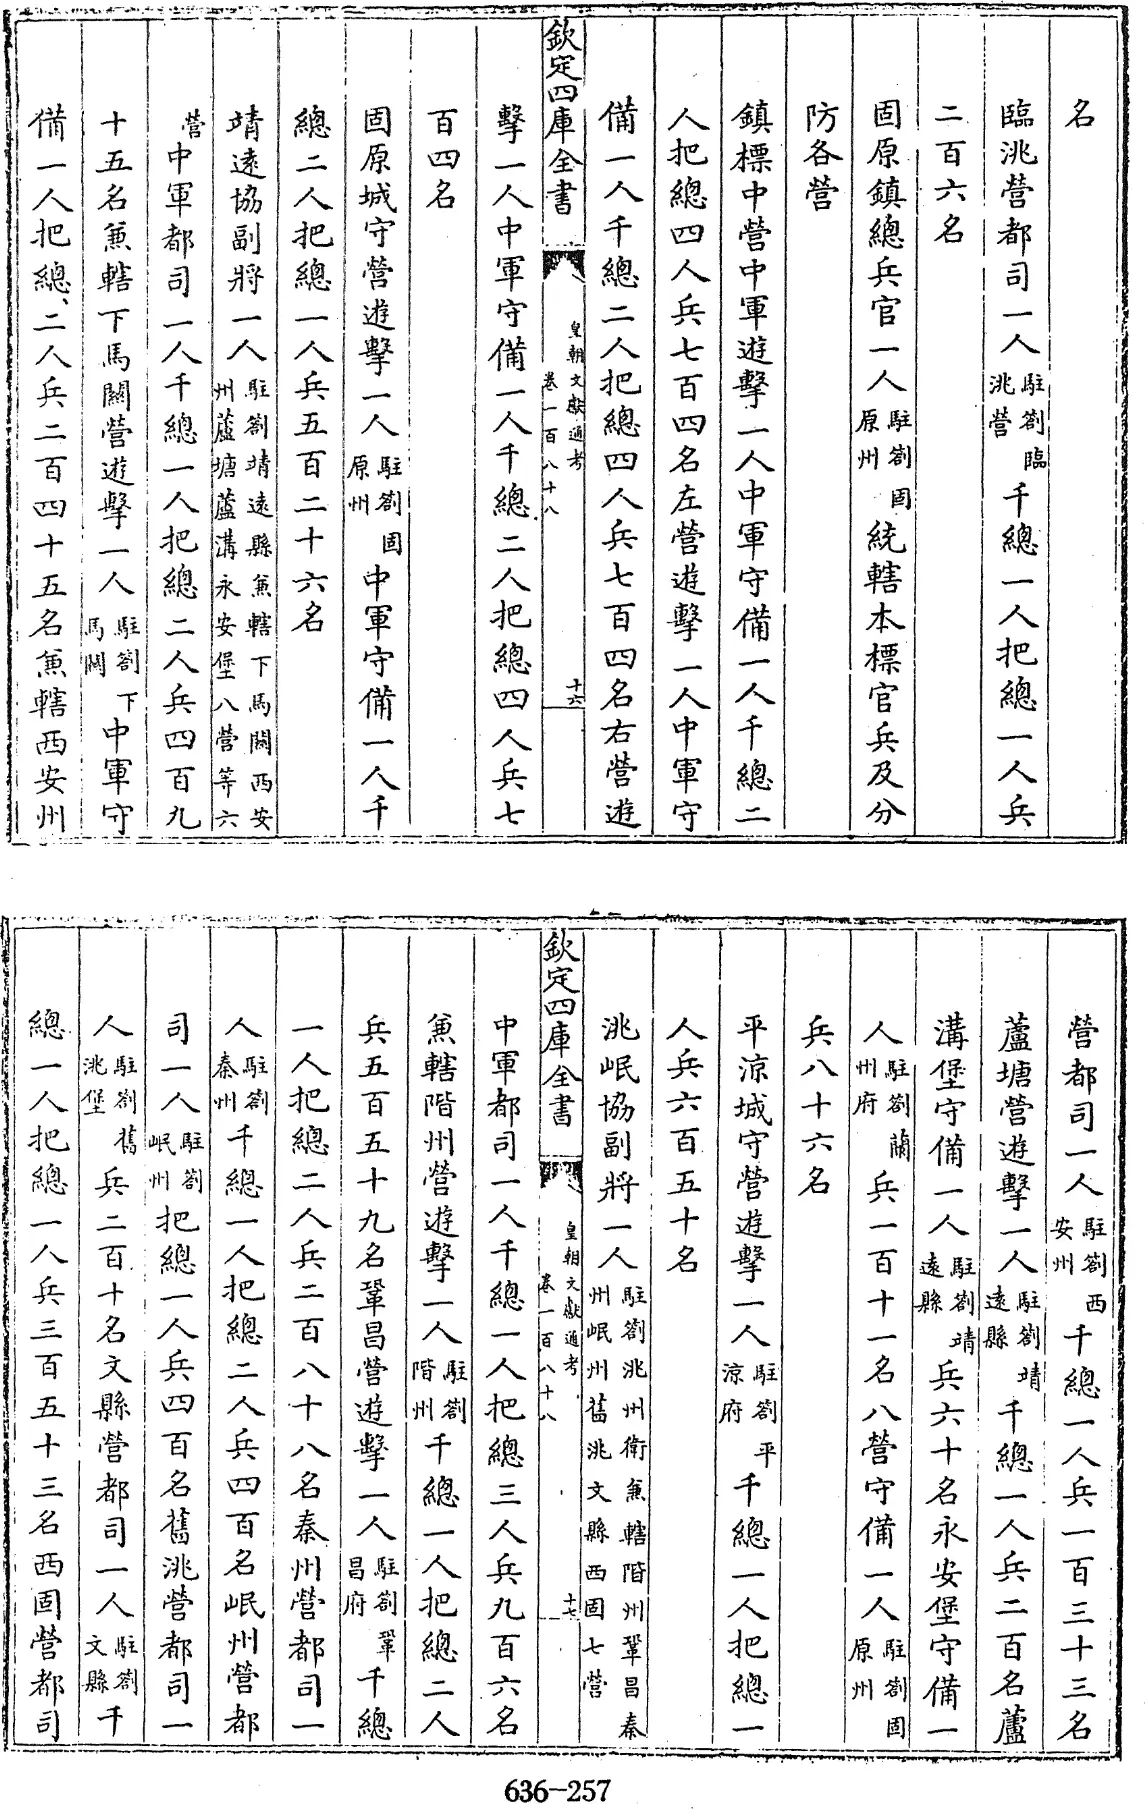 名
臨洮營都司一人駐劄臨洮營千總一人把總一人兵
二百六名
固原鎮總兵官一人駐劄固原州統轄本標官兵及分
防各營
鎮標中營中軍遊擊一人中軍守備一人千總二
人把總四人兵七百四名左營遊擊一人中軍守
備一人千總二人把總四人兵七百四名右營遊
欽定四庫全書
皇朝文獻通考
卷一百八十八
十六
擊一人中軍守備一人千總二人把總四人兵七
百四名
固原城守營遊擊一人駐劄固原州中軍守備一人千
總二人把總一人兵五百二十六名
靖遠協副將一人駐劄靖遠縣兼轄下馬關西安州蘆塘蘆溝永安堡八營等六
營中軍都司一人千總一人把總二人兵四百九
十五名兼轄下馬關營遊擊一人駐劄下馬關中軍守
備一人把總二人兵二百四十五名兼轄西安州
營都司一人駐劄西安州千總一人兵一百三十三名
蘆塘營遊擊一人駐劄靖遠縣千總一人兵二百名蘆
溝堡守備一人駐劄靖遠縣兵六十名永安堡守備一
人駐劄蘭州府兵一百十一名八營守備一人駐劄固原州
兵八十六名
平涼城守營遊擊一人駐劄平涼府千總一人把總一
人兵六百五十名
洮岷協副將一人駐劄洮州衛兼轄階州鞏昌秦州岷州舊洮文縣西固七營
欽定四庫全書
皇朝文獻通考
卷一百八十八
十七
中軍都司一人千總一人把總三人兵九百六名
兼轄階州營遊擊一人駐劄階州千總一人把總二人
兵五百五十九名鞏昌營遊擊一人駐劄鞏昌府千總
一人把總二人兵二百八十八名秦州營都司一
人駐劄秦州千總一人把總二人兵四百名岷州營都
司一人駐劄岷州把總一人兵四百名舊洮營都司一
人駐劄舊洮堡兵二百十名文縣營都司一人駐劄文縣千
總一人把總一人兵三百五十三名西固營都司
636-257